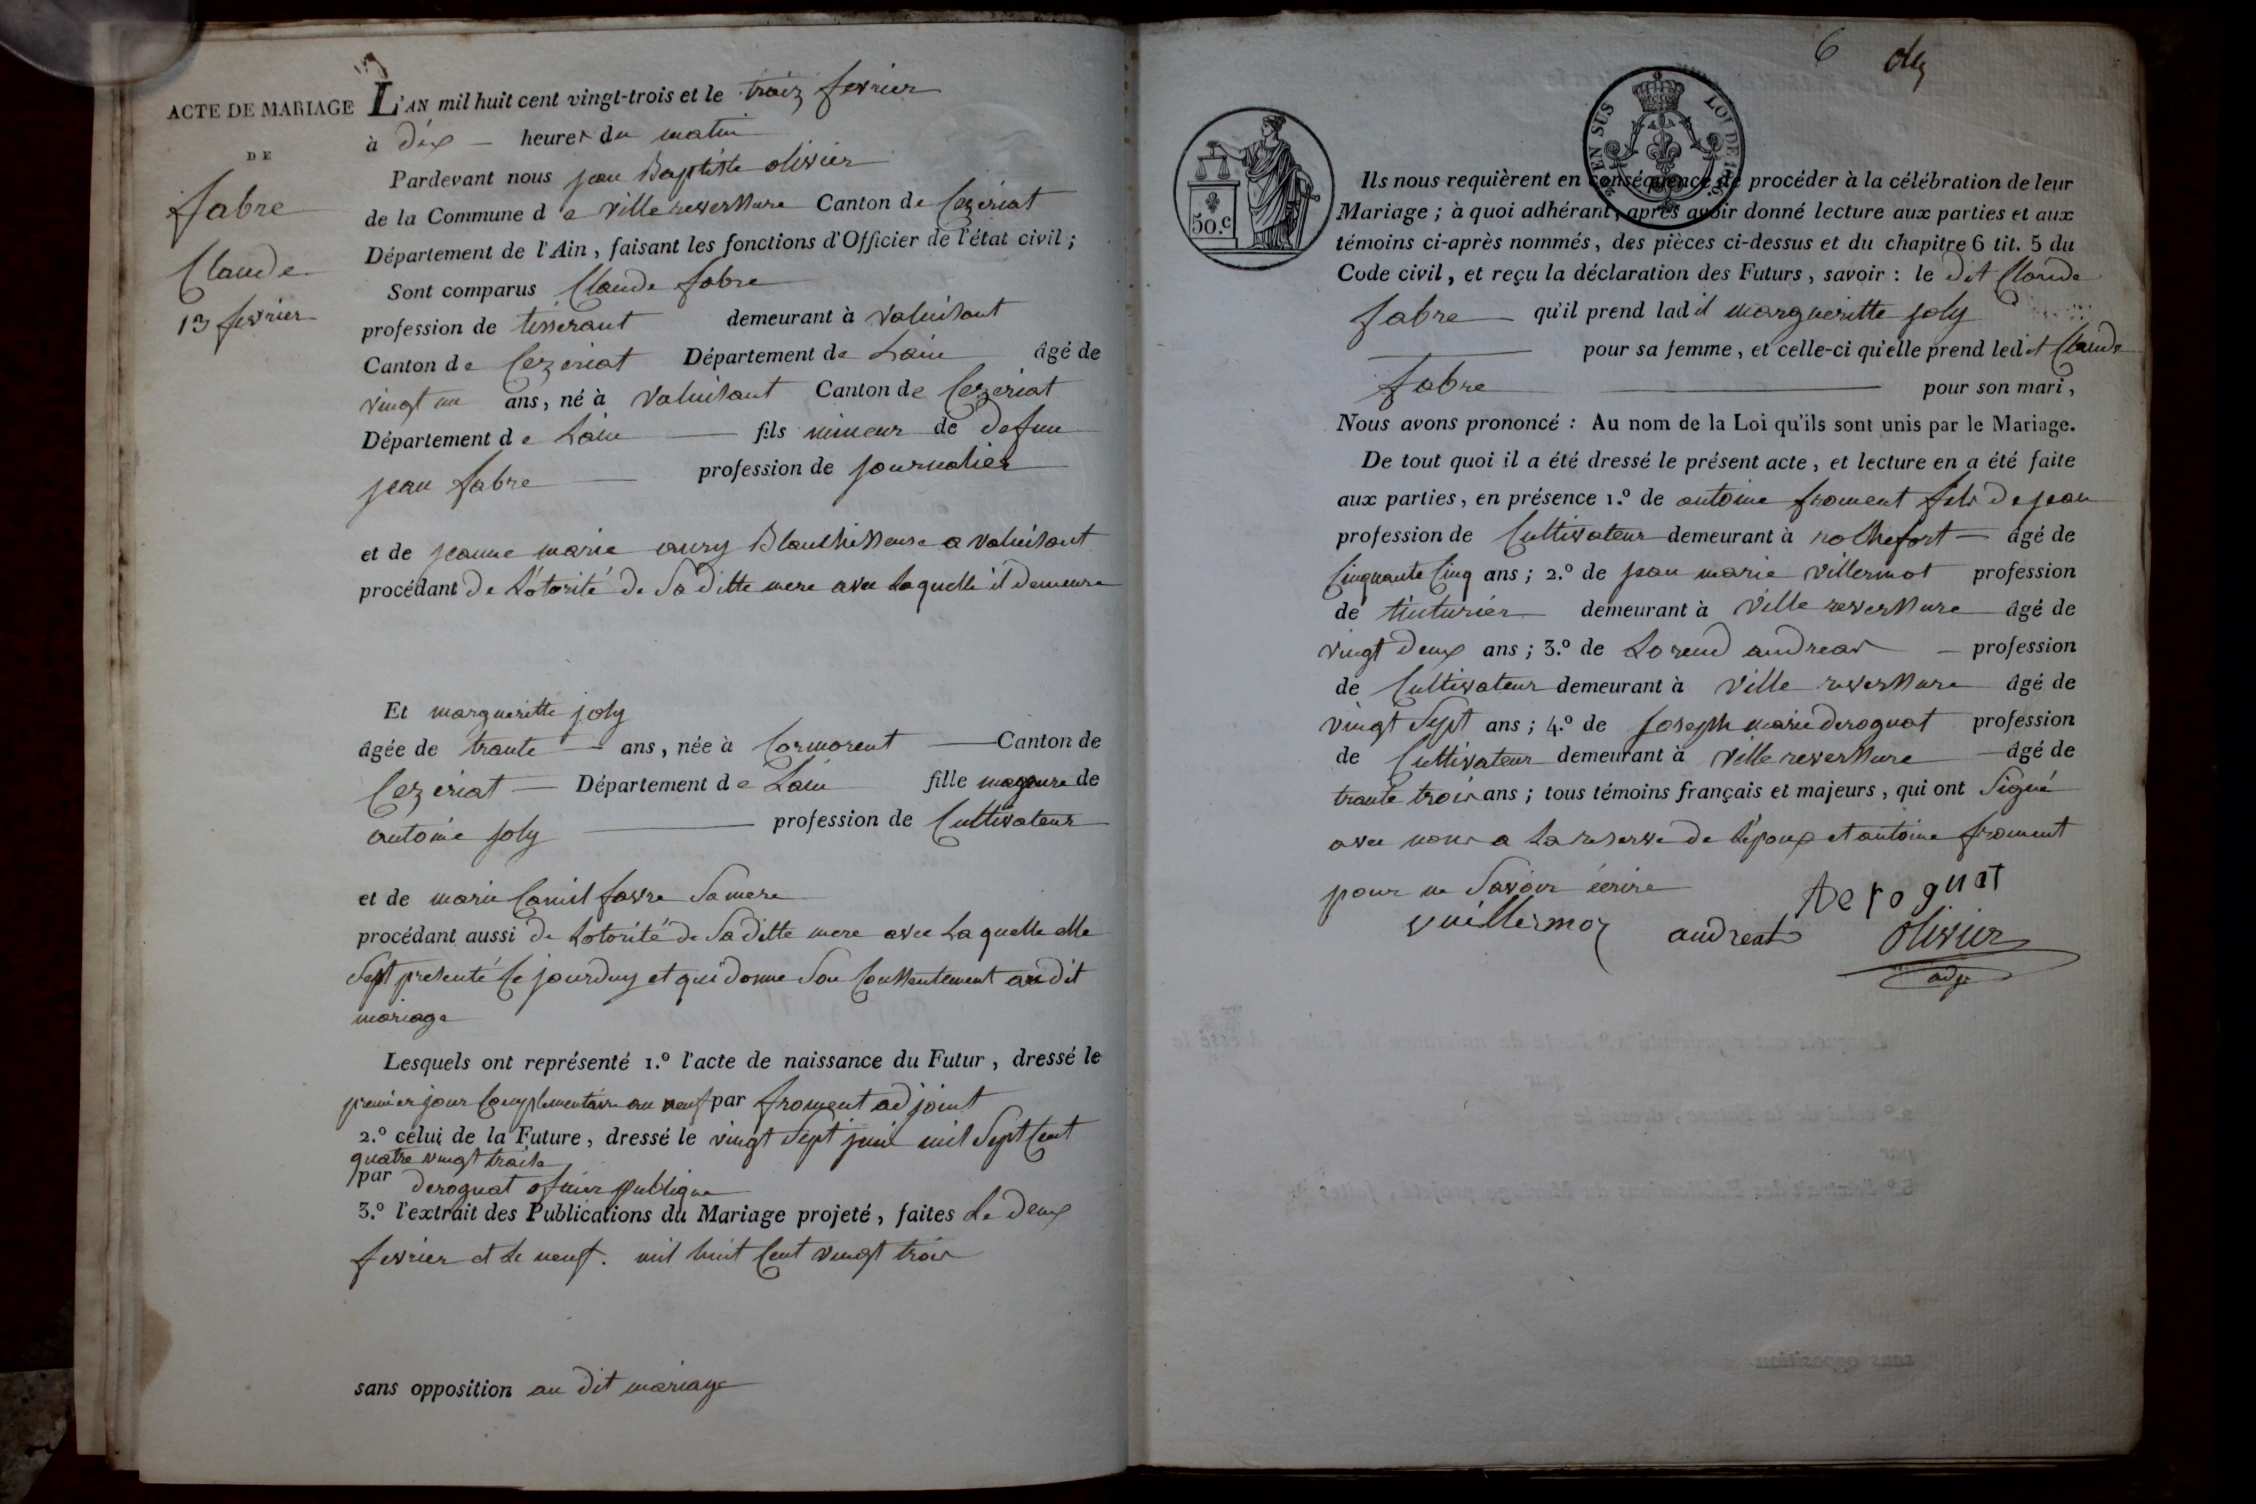 ACTE DE MARIAGE
DE
fabre
Claude
13 fevrier
L'AN mil huit cent vingt-trois et le traiz fevrier
à dix heures du matin
Pardevant nous jean Baptiste olivier
de la Commune de villereverssure Canton de Cezeriat
Département de l'Ain, faisant les fonctions d'Officier de l'état civil;
Sont comparus Claude fabre
profession de tisserant demeurant à valuisant
Canton de Cezeriat Département de Lain âgé de
vingt un ans, né à valuisant Canton de Cezeriat
Département de Lain fils mineur de defun
jean fabre profession de journalier
et de jeanne marie aury Blanchisseuse a valuisant
procédant de Lotorité de Sa ditte mere avec Laquelle il demeure
Et margueritte joly
âgée de trante ans, née à Cormorent Canton de
Cezeriat Département de Lain fille mageure de
antoine joly profession de Cultivateur
et de marie Camil favre Sa mere
procédant aussi de Lotorité de Sa ditte mere avec Laquelle elle
Sest presenté Ce jourduy et qui donne Son Conssentement au dit
mariage
Lesquels ont représenté 1.º l'acte de naissance du Futur, dressé le
premier jour Complementaire an neuf par froment adjoint
2.º celui de la Future, dressé le vingt Sept juin mil Sept Cent
quatre vingt traise
par deroguat ofisier publique
3.º l'extrait des Publications du Mariage projeté, faites Le deux
fevrier et Le neuf. mil huit Cent vingt trois
sans opposition au dit mariage
6
EN SUS
LOI DE 1816
50.c
Ils nous requièrent en conséquence de procéder à la célébration de leur
Mariage; à quoi adhérant, après avoir donné lecture aux parties et aux
témoins ci-après nommés, des pièces ci-dessus et du chapitre 6 tit. 5 du
Code civil, et reçu la déclaration des Futurs, savoir: le dit Claude
fabre qu'il prend ladit margueritte joly
pour sa femme, et celle-ci qu'elle prend ledit Claude
fabre pour son mari,
Nous avons prononcé: Au nom de la Loi qu'ils sont unis par le Mariage.
De tout quoi il a été dressé le présent acte, et lecture en a été faite
aux parties, en présence 1.º de antoine froment fils de jean
profession de Cultivateur demeurant à rochefort âgé de
Cinquante Cinq ans; 2.º de jean marie villermot profession
de tinturier demeurant à ville reverssure âgé de
vingt deux ans; 3.º de Lorend andreas profession
de Cultivateur demeurant à ville reverssure âgé de
vingt Sept ans; 4.º de joseph marie deroguat profession
de Cultivateur demeurant à ville reverssure âgé de
trante trois ans; tous témoins français et majeurs, qui ont Signé
avec nous a La reserve de Lepoux et antoine froment
pour ne Savoir écrire
deroguat
vuillermoz andreat olivier
adj